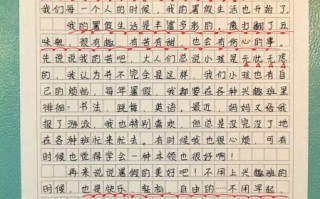 我们每一个人的时候，我的暑假生活也开始了
我的暑假生活是丰富多彩的，像打翻了五
味瓶，很有趣，有苦有甜，也会有伤心的事。
先说说我的苦吧，大人们总说小孩是无忧无虑
的，我认为并不完全是这样，我们小孩也有自
己的烦恼，每年暑假，我都在各种兴趣班里
徘徊：书法，跳舞，英语，最近，妈妈又给我
报了游泳，我也特别喜欢，但总是没完没了地
在各种班忙来忙去。有时候我也很心烦，可有
时候也觉得学会一种本领也很好啊！
再来说说暑假的美好吧！不用上兴趣班的
时候，也是快乐，轻松，自由的一不用早起，